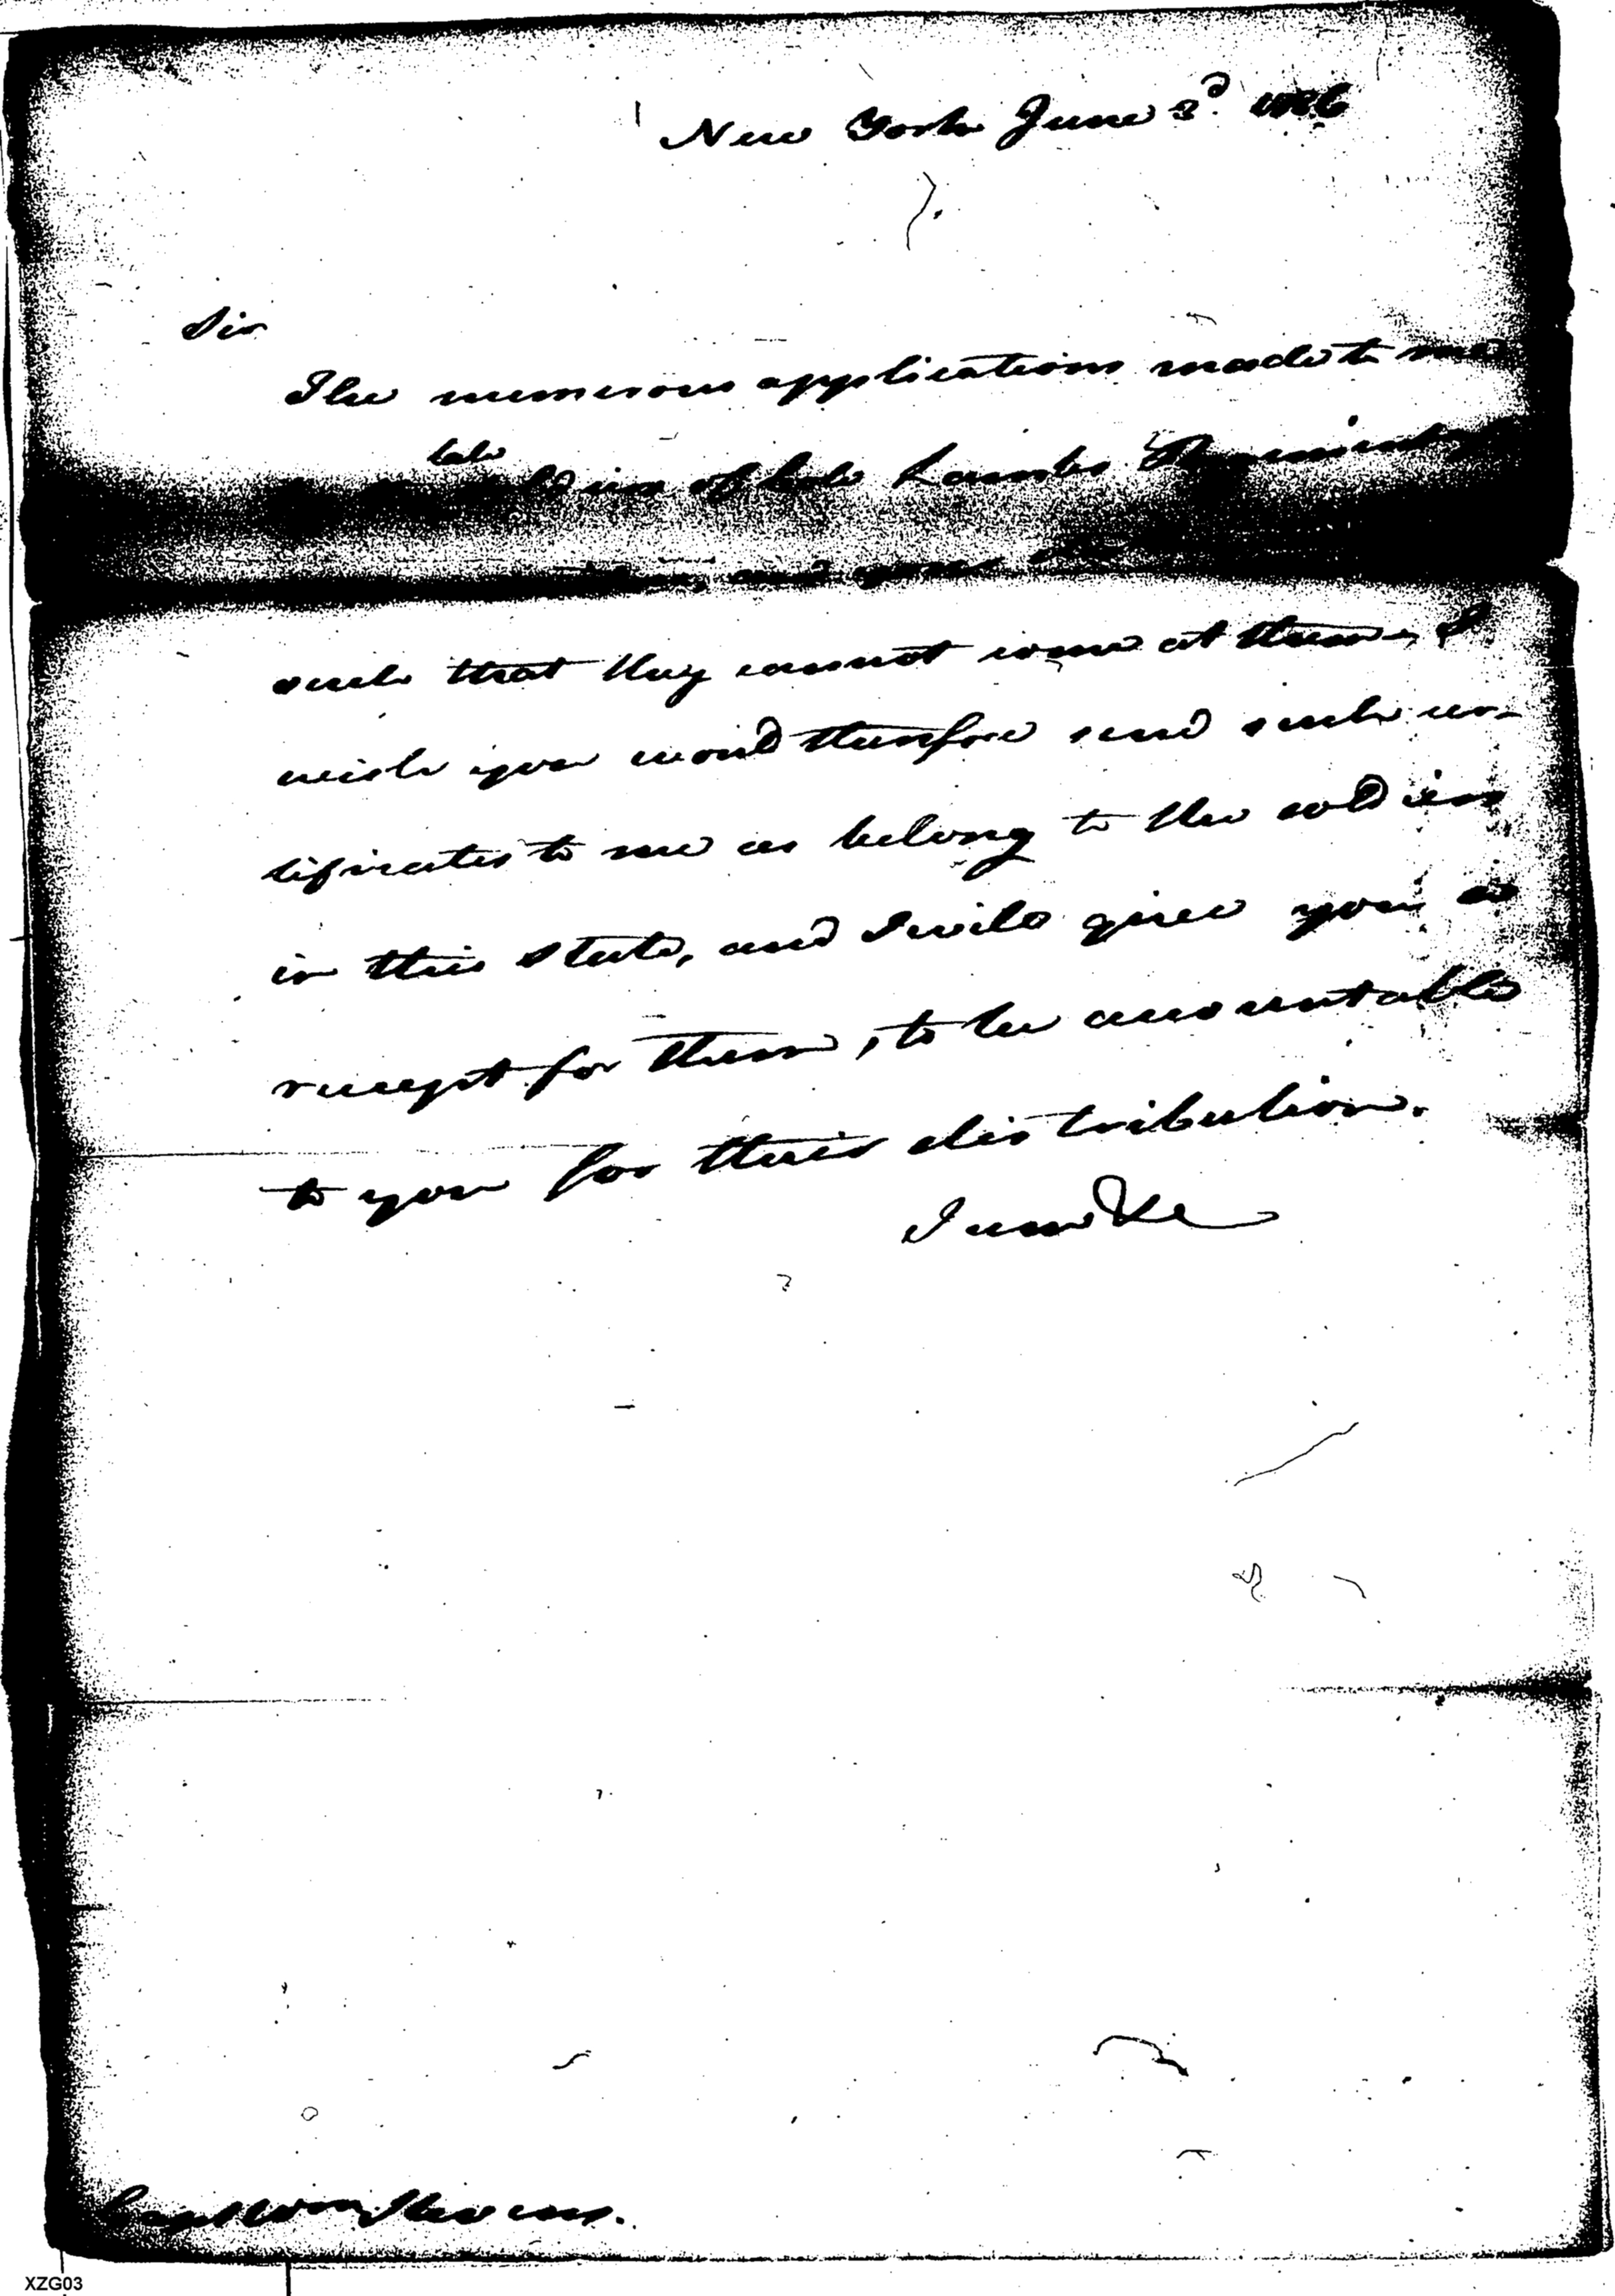 New York June 3d. 1786
Sir
The numerous applications made to me
late
soldiers of Colo Lambs Regiment
and your
such that they cannot come at them, I
wish you would therefore send such cer-
tificates to me as belong to the soldiers
in this State, and I will give you a
receipt for them, to be accountable
to you for their distribution.
I am &c
Capt Wm Stevens.
XZG03